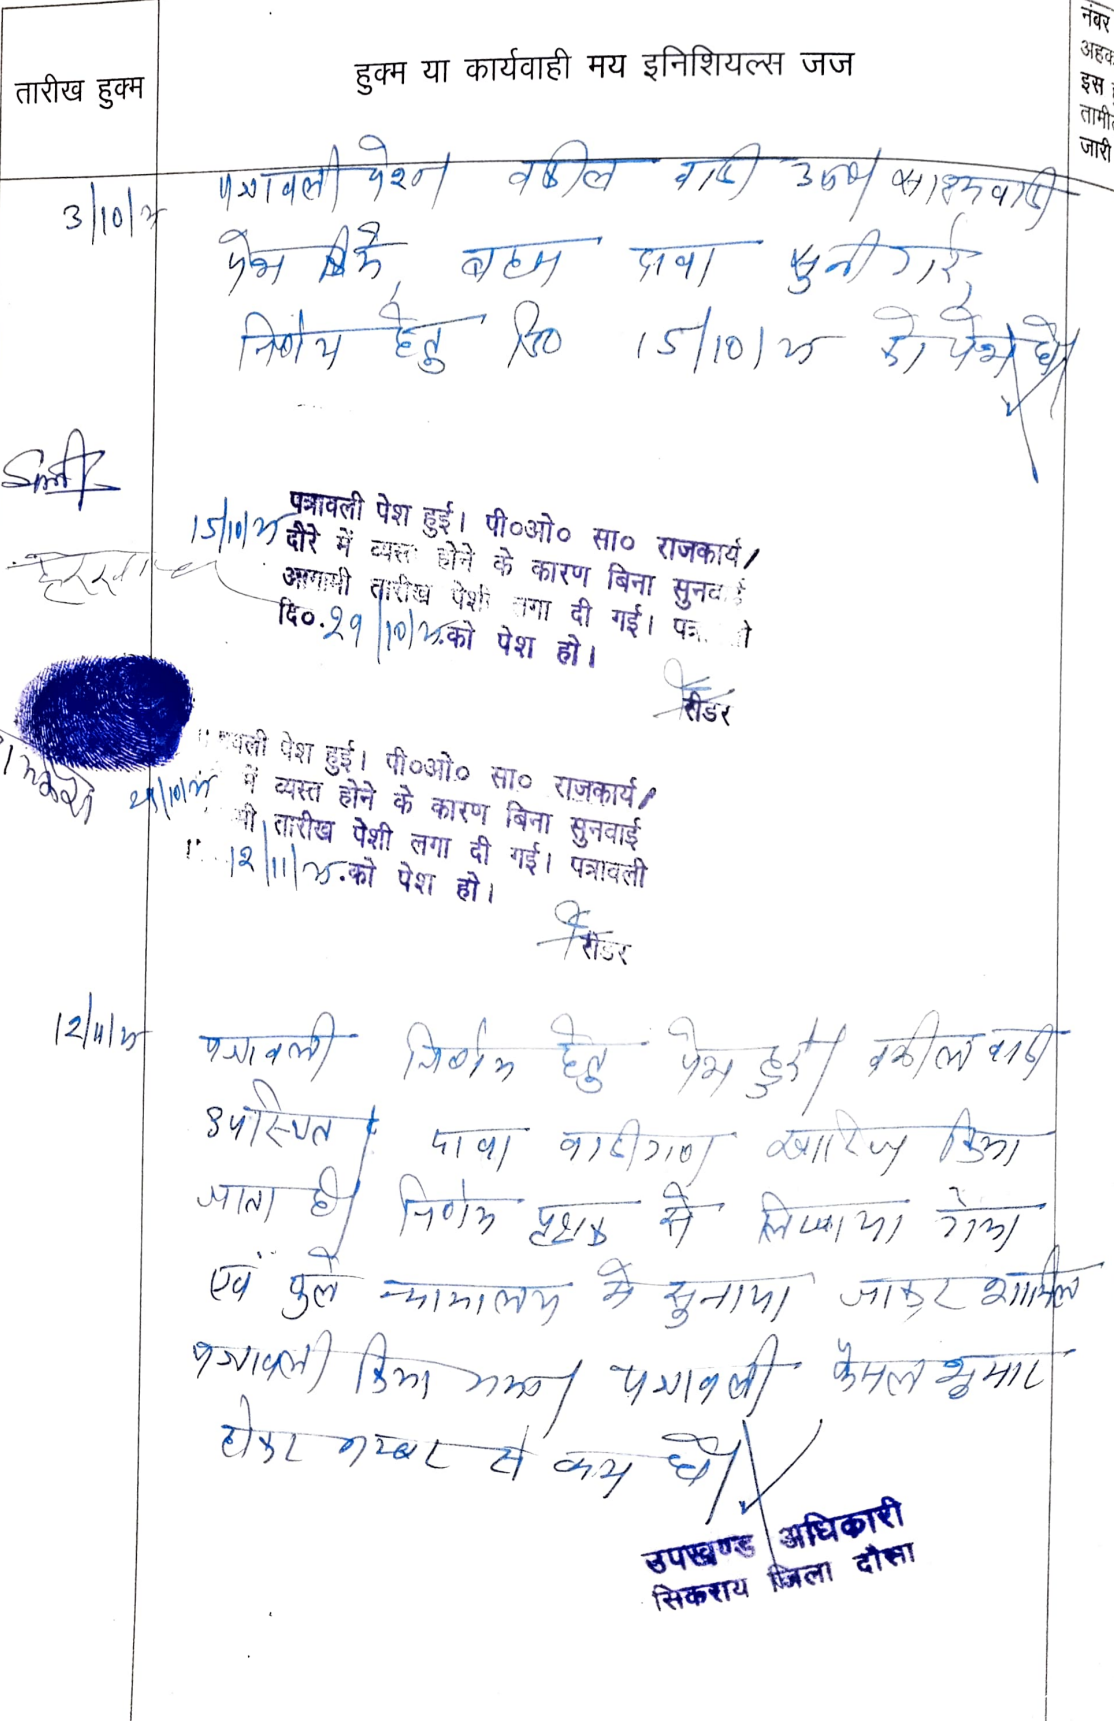 तारीख हुक्म
हुक्म या कार्यवाही मय इनिशियल्स जज
नंबर
अहक
इस
तामी
जारी
3/10/25 पत्रावली पेश। वकील वादी उप0। साक्ष्य वादी
पेश किये, बहस दावा सुनी गई,
निर्णय हेतु दि0 15/10/25 को पेश हो।
15/10/25 पत्रावली पेश हुई। पी०ओ० सा० राजकार्य/
दौरे में व्यस्त होने के कारण बिना सुनवाई
आगामी तारीख पेशी लगा दी गई। पत्रावली
दि०.29/10/25.को पेश हो।
रीडर
पत्रावली पेश हुई। पी०ओ० सा० राजकार्य/
29/10/25 में व्यस्त होने के कारण बिना सुनवाई
तारीख पेशी लगा दी गई। पत्रावली
12/11/25.को पेश हो।
रीडर
12/11/25 पत्रावली निर्णय हेतु पेश हुई। वकील वादी
उपस्थित। दावा वादीगण खारिज किया
जाता है। निर्णय पृथक से लिखाया गया
एवं खुले न्यायालय में सुनाया जाकर शामिल
पत्रावली किया गया। पत्रावली फैसल शुमार
होकर नम्बर से कम हो।
उपखण्ड अधिकारी
सिकराय जिला दौसा